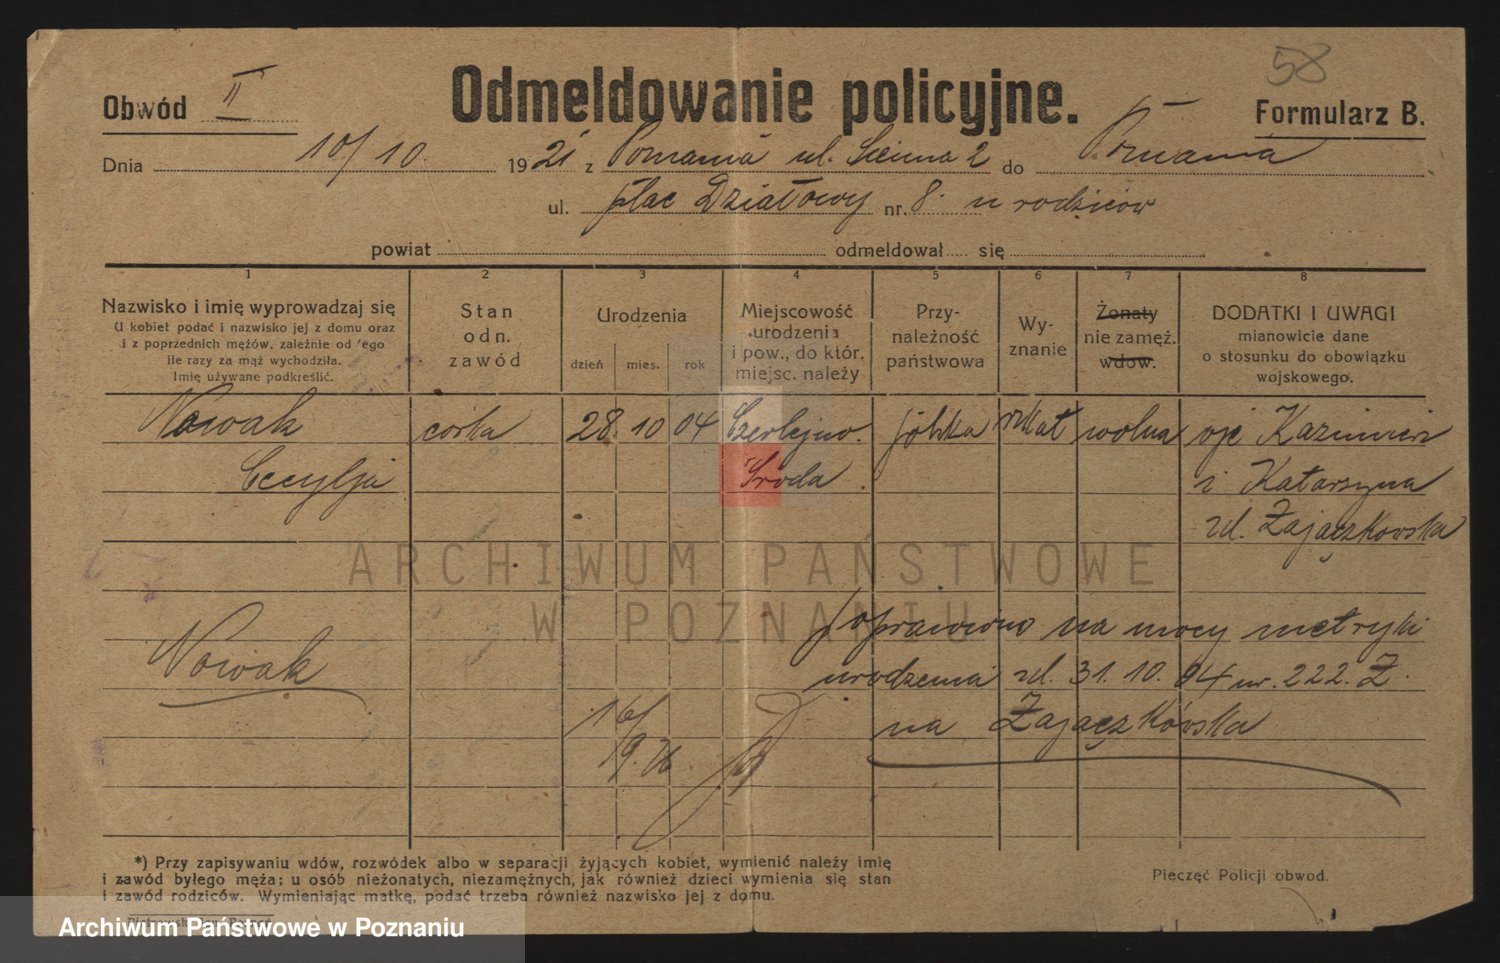 58
Obwód II
Odmeldowanie policyjne.
Formularz B.
Dnia 10/10. 1921 z Poznania ul. Sienna 2 do Poznania
ul. plac Działowy nr. 8. u rodziców
powiat odmeldował się
1 2 3 4 5 6 7 8
Nazwisko i imię wyprowadzaj się
U kobiet podać i nazwisko jej z domu oraz
i z poprzednich mężów, zależnie od 'ego
ile razy za mąż wychodziła.
Imię używane podkreślić.
Stan
odn.
zawód
Urodzenia
dzień mies. rok
Miejscowość
urodzenia
i pow., do któr.
miejsc. należy
Przy-
należność
państwowa
Wy-
znanie
Żonaty
nie zamęż.
wdow.
DODATKI I UWAGI
mianowicie dane
o stosunku do obowiązku
wojskowego.
Nowak córka 28. 10 04 Szerlejno. polska rzkat wolna ojc Kazimierz
Cecylja Środa. i Katarzyna
zd. Zajączkowska
ARCHIWUM PAŃSTWOWE
W POZNANIU
poprawiono na mocy metryki
Nowak urodzenia zd. 31. 10. 04 nr. 222. Z.
16/ na Zajączkówska
9. 26
*) Przy zapisywaniu wdów, rozwódek albo w separacji żyjących kobiet, wymienić należy imię
i zawód byłego męża; u osób nieżonatych, niezamężnych, jak również dzieci wymienia się stan
i zawód rodziców. Wymieniając matkę, podać trzeba również nazwisko jej z domu.
Pieczęć Policji obwod.
Archiwum Państwowe w Poznaniu